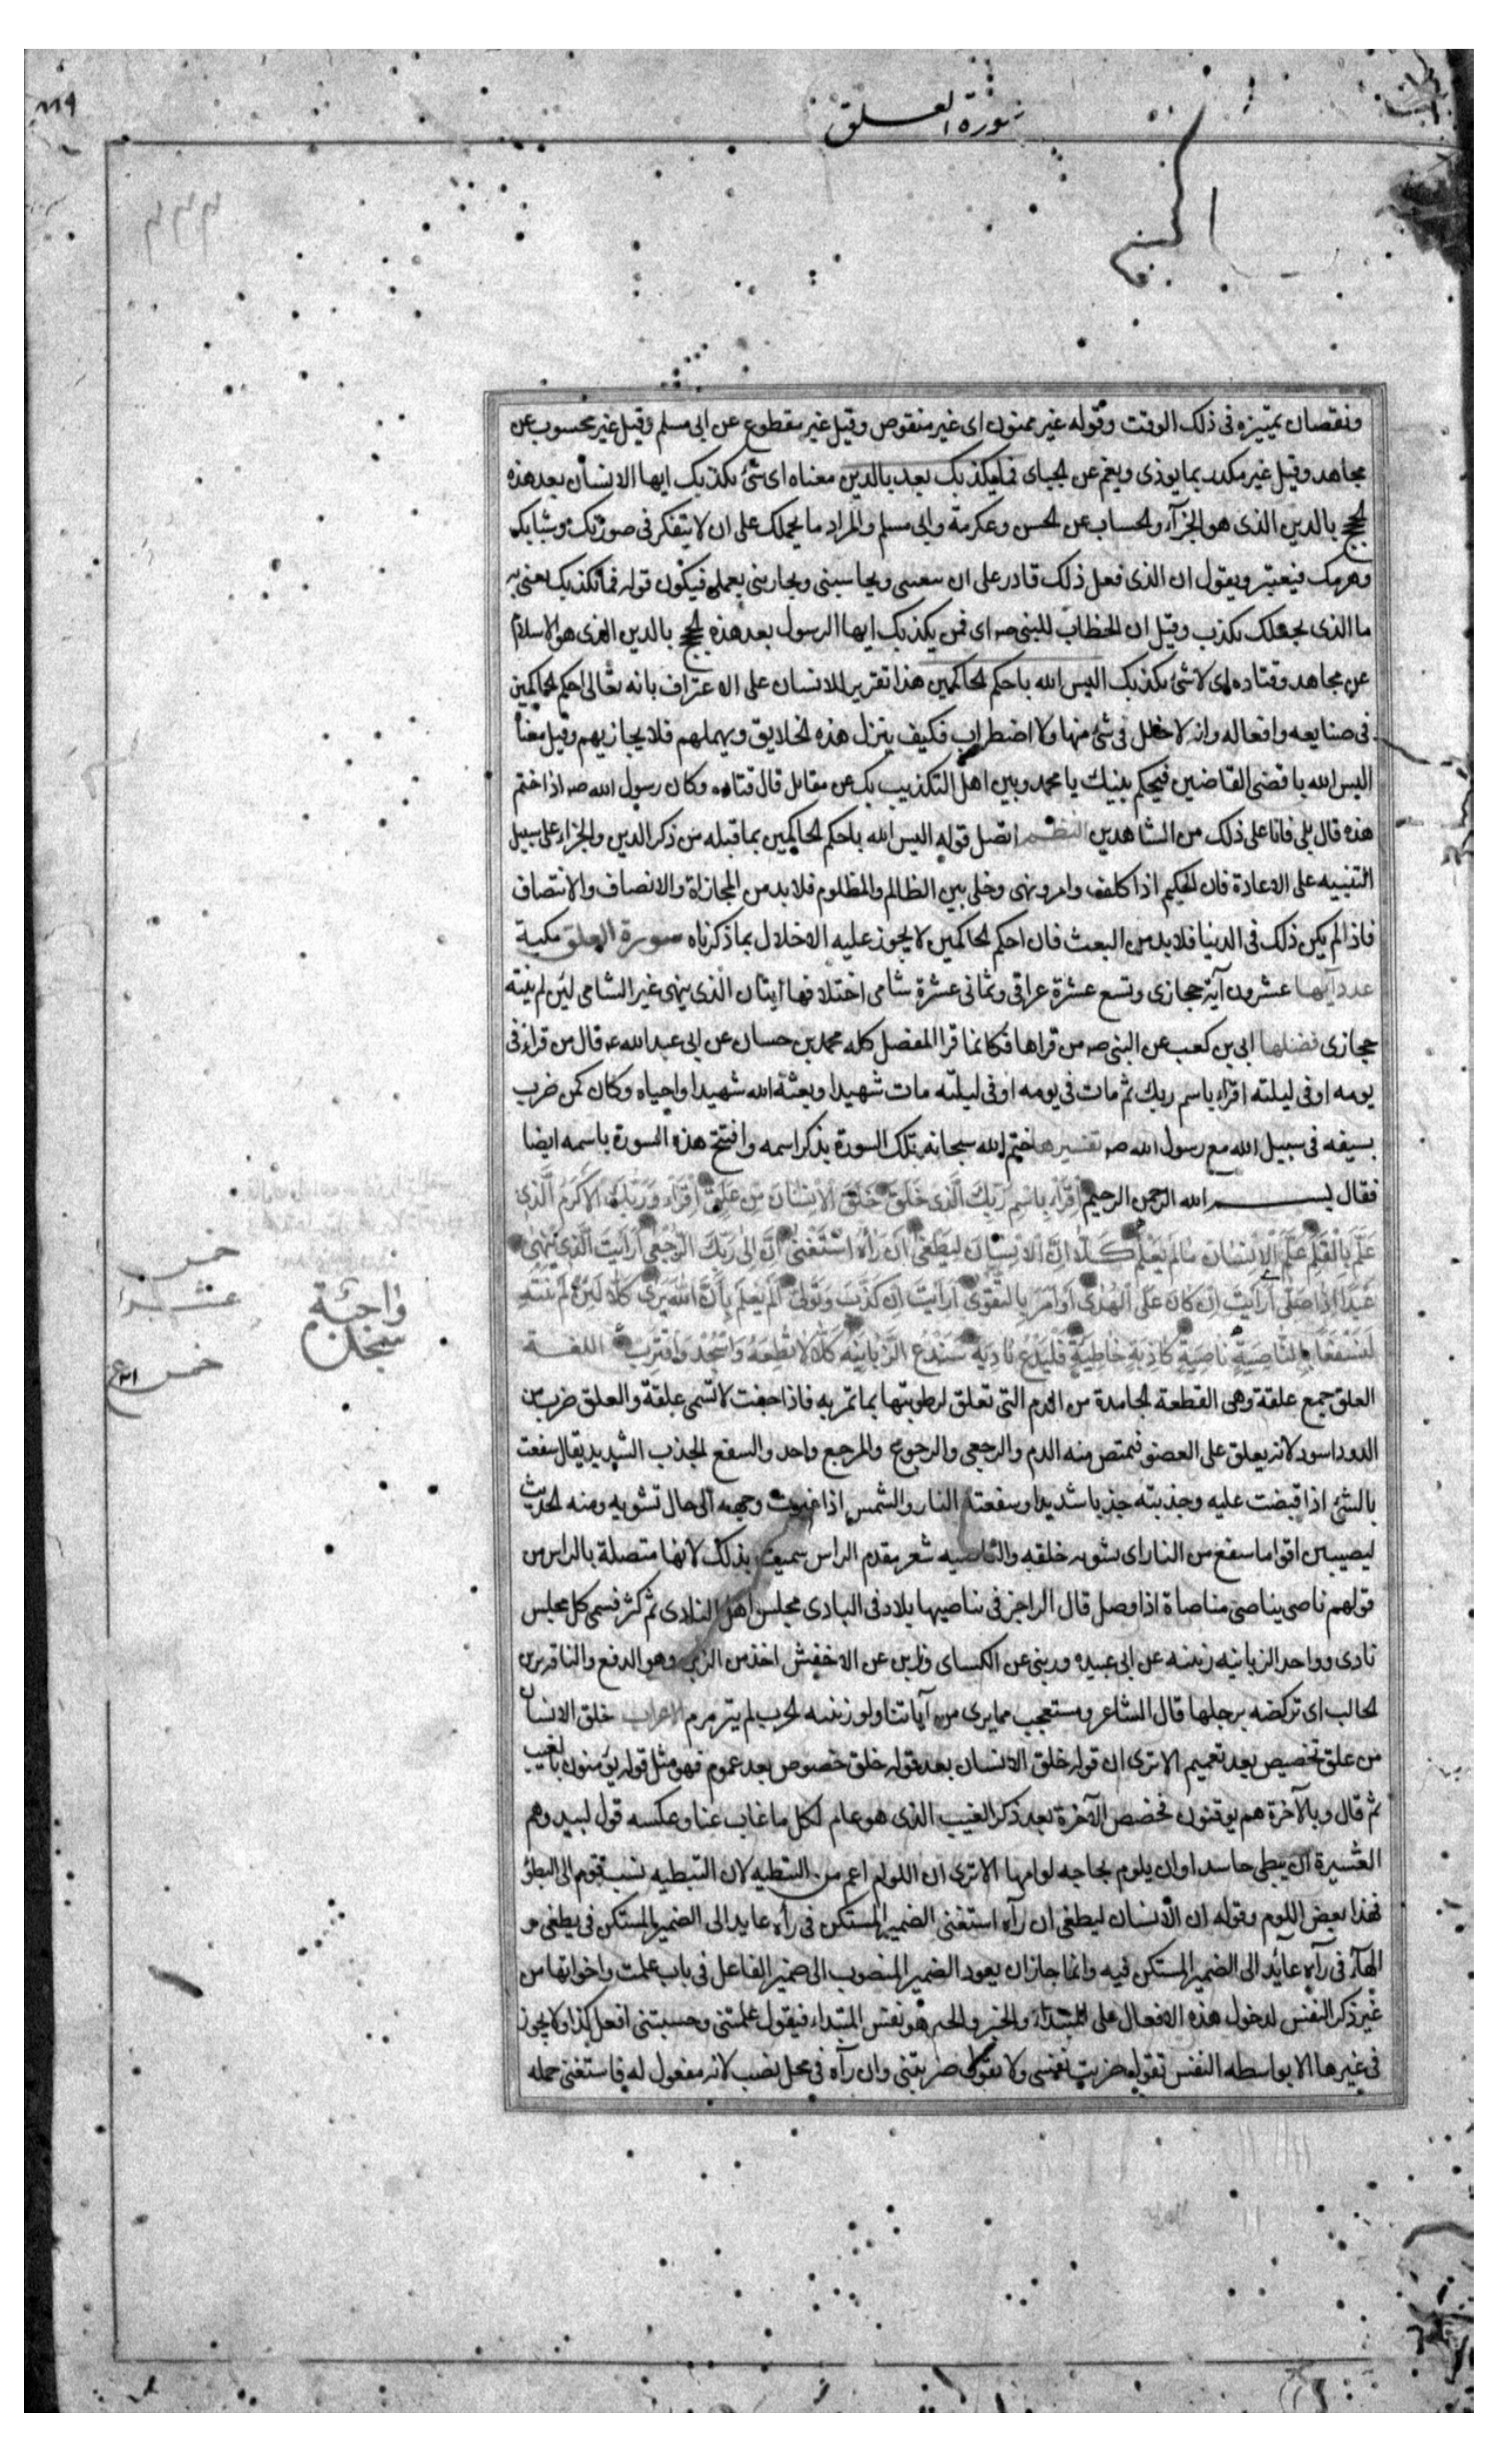 سورة العلق
ونقصان تمييزه فى ذلك الوقت وقوله غير ممنون اى غير منقوص وقيل غير مقطوع عن ابى مسلم وقيل غير محسوب عن
مجاهد وقيل غير مكدر بما يوذى ويغم عن الجباى فما يكذبك بعد بالدين معناه اى شئ يكذبك ايها الانسان بعد هذه
الحجج بالدين الذى هو الجزآء والحساب عن الحسن وعكرمة وابى مسلم والمراد ما يحملك على ان لا يتفكر فى صورتك وشبابك
وهرمك فيعتبر ويقول ان الذى فعل ذلك قادر على ان يبعثنى ويحاسبنى ويجازينى بعملى فيكون قوله فما يكذبك يعنى به
ما الذى يجعلك تكذب وقيل ان الخطاب للنبى صه اى فمن يكذبك ايها الرسول بعد هذه الحجج بالدين الذى هو الاسلام
عن مجاهد وقتاده اى لا شئ يكذبك اليس الله باحكم الحاكمين هذا تقرير للانسان على الاعتراف بانه تعالى احكم الحاكمين
فى صنايعه وافعاله وانه لا خلل فى شئ منها ولا اضطراب فكيف يترك هذه الخلايق ويهملهم فلا يجازيهم وقيل معناه
اليس الله باقضى القاضين فيحكم بينك يا محمد وبين اهل التكذيب بك عن مقاتل قال قتاده وكان رسول الله صه اذا ختم
هذه قال بلى فانا على ذلك من الشاهدين النظم اتصل قوله اليس الله باحكم الحاكمين بما قبله من ذكر الدين والجزاء على سبيل
التنبيه على الاعادة فان الحكيم اذا كلف وامر ونهى وخلى بين الظالم والمظلوم فلا بد من المجازاة والانصاف والانتصاف
فاذا لم يكن ذلك فى الدنيا فلا بد من البعث فان احكم الحاكمين لا يجوز عليه الاخلال بما ذكرناه سورة العلق مكية
عدد آيها عشرون آية حجازى وتسع عشرة عراقى وثمانى عشرة شامى اختلافها آيتان الذى ينهى غير الشامى لئن لم ينته
حجازى فضلها ابى بن كعب عن النبى صه من قراها فكانما قرا المفصل كله محمد بن حسان عن ابى عبد الله عه قال من قراء فى
يومه او فى ليلته اقراء باسم ربك ثم مات فى يومه او فى ليلته مات شهيدا وبعثه الله شهيدا واحياه وكان كمن ضرب
بسيفه فى سبيل الله مع رسول الله صه تفسيرها ختم الله سبحانه تلك السورة بذكر اسمه وافتتح هذه السورة باسمه ايضا
فقال بسم الله الرحمن الرحيم اِقْرَاْء بِاسْمِ رَبِّكَ الَّذى خَلَقَ خَلَقَ الْاِنْسَانَ مِنْ عَلَقٍ اِقْرَاْء وَرَبُّكَ الْاَكْرَمُ الَّذى
عَلَّمَ بِالْقَلَمِ عَلَّمَ الْاِنْسَانَ مَا لَمْ يَعْلَمْ كَلَّا اِنَّ الْاِنْسَانَ لَيَطْغى اَنْ رَآهُ اسْتَغْنى اِنَّ اِلى رَبِّكَ الرُّجْعى اَرَاَيْتَ الَّذى يَنْهى
عَبْدًا اِذَا صَلّى اَرَاَيْتَ اِنْ كَانَ عَلَى الْهُدى اَوْ اَمَرَ بِالتَّقْوى اَرَاَيْتَ اِنْ كَذَّبَ وَتَوَلّى اَلَمْ يَعْلَمْ بِاَنَّ اللّهَ يَرى كَلَّا لَئِنْ لَمْ يَنْتَهِ
لَنَسْفَعًا بِالنَّاصِيَةِ نَاصِيَةٍ كَاذِبَةٍ خَاطِئَةٍ فَلْيَدْعُ نَادِيَهُ سَنَدْعُ الزَّبَانِيَةَ كَلَّا لَا تُطِعْهُ وَاسْجُدْ وَاقْتَرِبْ اللغة
العلق جمع علقة وهى القطعة الجامدة من الدم التى تعلق لرطوبتها بما تمر به فاذا جفت لا تسمى علقة والعلق ضرب من
الدود اسود لانه يعلق على العضو فيمتص منه الدم والرجعى والرجوع والمرجع واحد والسفع الجذب الشديد يقال سفعت
بالشئ اذا قبضت عليه وجذبته جذبا شديدا وسفعته النار والشمس اذا غيرت وجهه الى حال تشويه ومنه الحديث
ليصيبن اقواما سفع من النار اى تشويه خلقه والناصيه شعر مقدم الراس سميت بذلك لانها متصلة بالراس من
قولهم ناصى يناصى مناصاة اذا وصل قال الراجز فى تناصيها بلاد فى البادى مجلس اهل النادى ثم كثر فسمى كل مجلس
نادى وواحد الزبانيه زبنيه عن ابى عبيده وزبنى عن الكساى وزابن عن الاخفش اخذ من الزبن وهو الدفع والناقة تزبن
الحالب اى تركضه برجلها قال الشاعر ومستعجب مما يرى من آياتنا ولو زبنته الحرب لم يترمرم الاعراب خلق الانسان
من علق تخصيص بعد تعميم الا ترى ان قوله خلق الانسان بعد قوله خلق خصوص بعد عموم فهو مثل قوله يؤمنون بالغيب
ثم قال وبالآخرة هم يوقنون فخصص الآخرة بعد ذكر الغيب الذى هو عام لكل ما غاب عنا وعكسه قول لبيد وهم
العشيرة ان يبطى حاسد او ان يلوم بحاجه لوامها الا ترى ان اللوم اعم من التبطيه لان التبطيه نسب قوم الى البطؤ
فهذا بعض اللوم وقوله ان الانسان ليطغى ان رآه استغنى الضمير المستكن فى رآه عايد الى الضمير المستكن فى يطغى و
الهآء فى رآه عائد الى الضمير المستكن فيه وانما جاز ان يعود الضمير المنصوب الى ضمير الفاعل فى باب علمت واخواتها من
غير ذكر النفس لدخول هذه الافعال على المبتداء والخبر والخبر هو نفس المبتداء فيقول علمتنى وحسبتنى افعل كذا ولا يجوز
فى غيرها الا بواسطه النفس تقول ضربت نفسى ولا تقول ضربتنى وان رآه فى محل نصب لانه مفعول له فاستغنى جمله
خمس
عشر
واجبة
سجدة
خمس